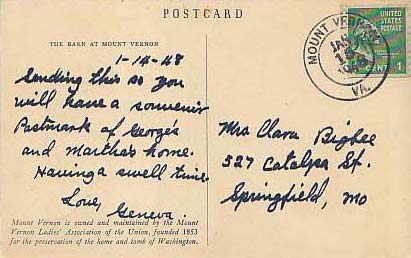 POSTCARD
THE BARN AT MOUNT VERNON
1-14-48
Sending this so you
will have a souvenir
Postmark of George's
and Martha's home.
Having a swell time
Love,
Geneva.
Mount Vernon is owned and maintained by the Mount
Vernon Ladies' Association of the Union, founded 1853
for the preservation of the home and tomb of Washington.
MOUNT VERNON
JAN
VA.
UNITED
STATES
POSTAGE
1 CENT 1
Mrs Clara Bigbee
527 Catalpa St.
Springfield, Mo